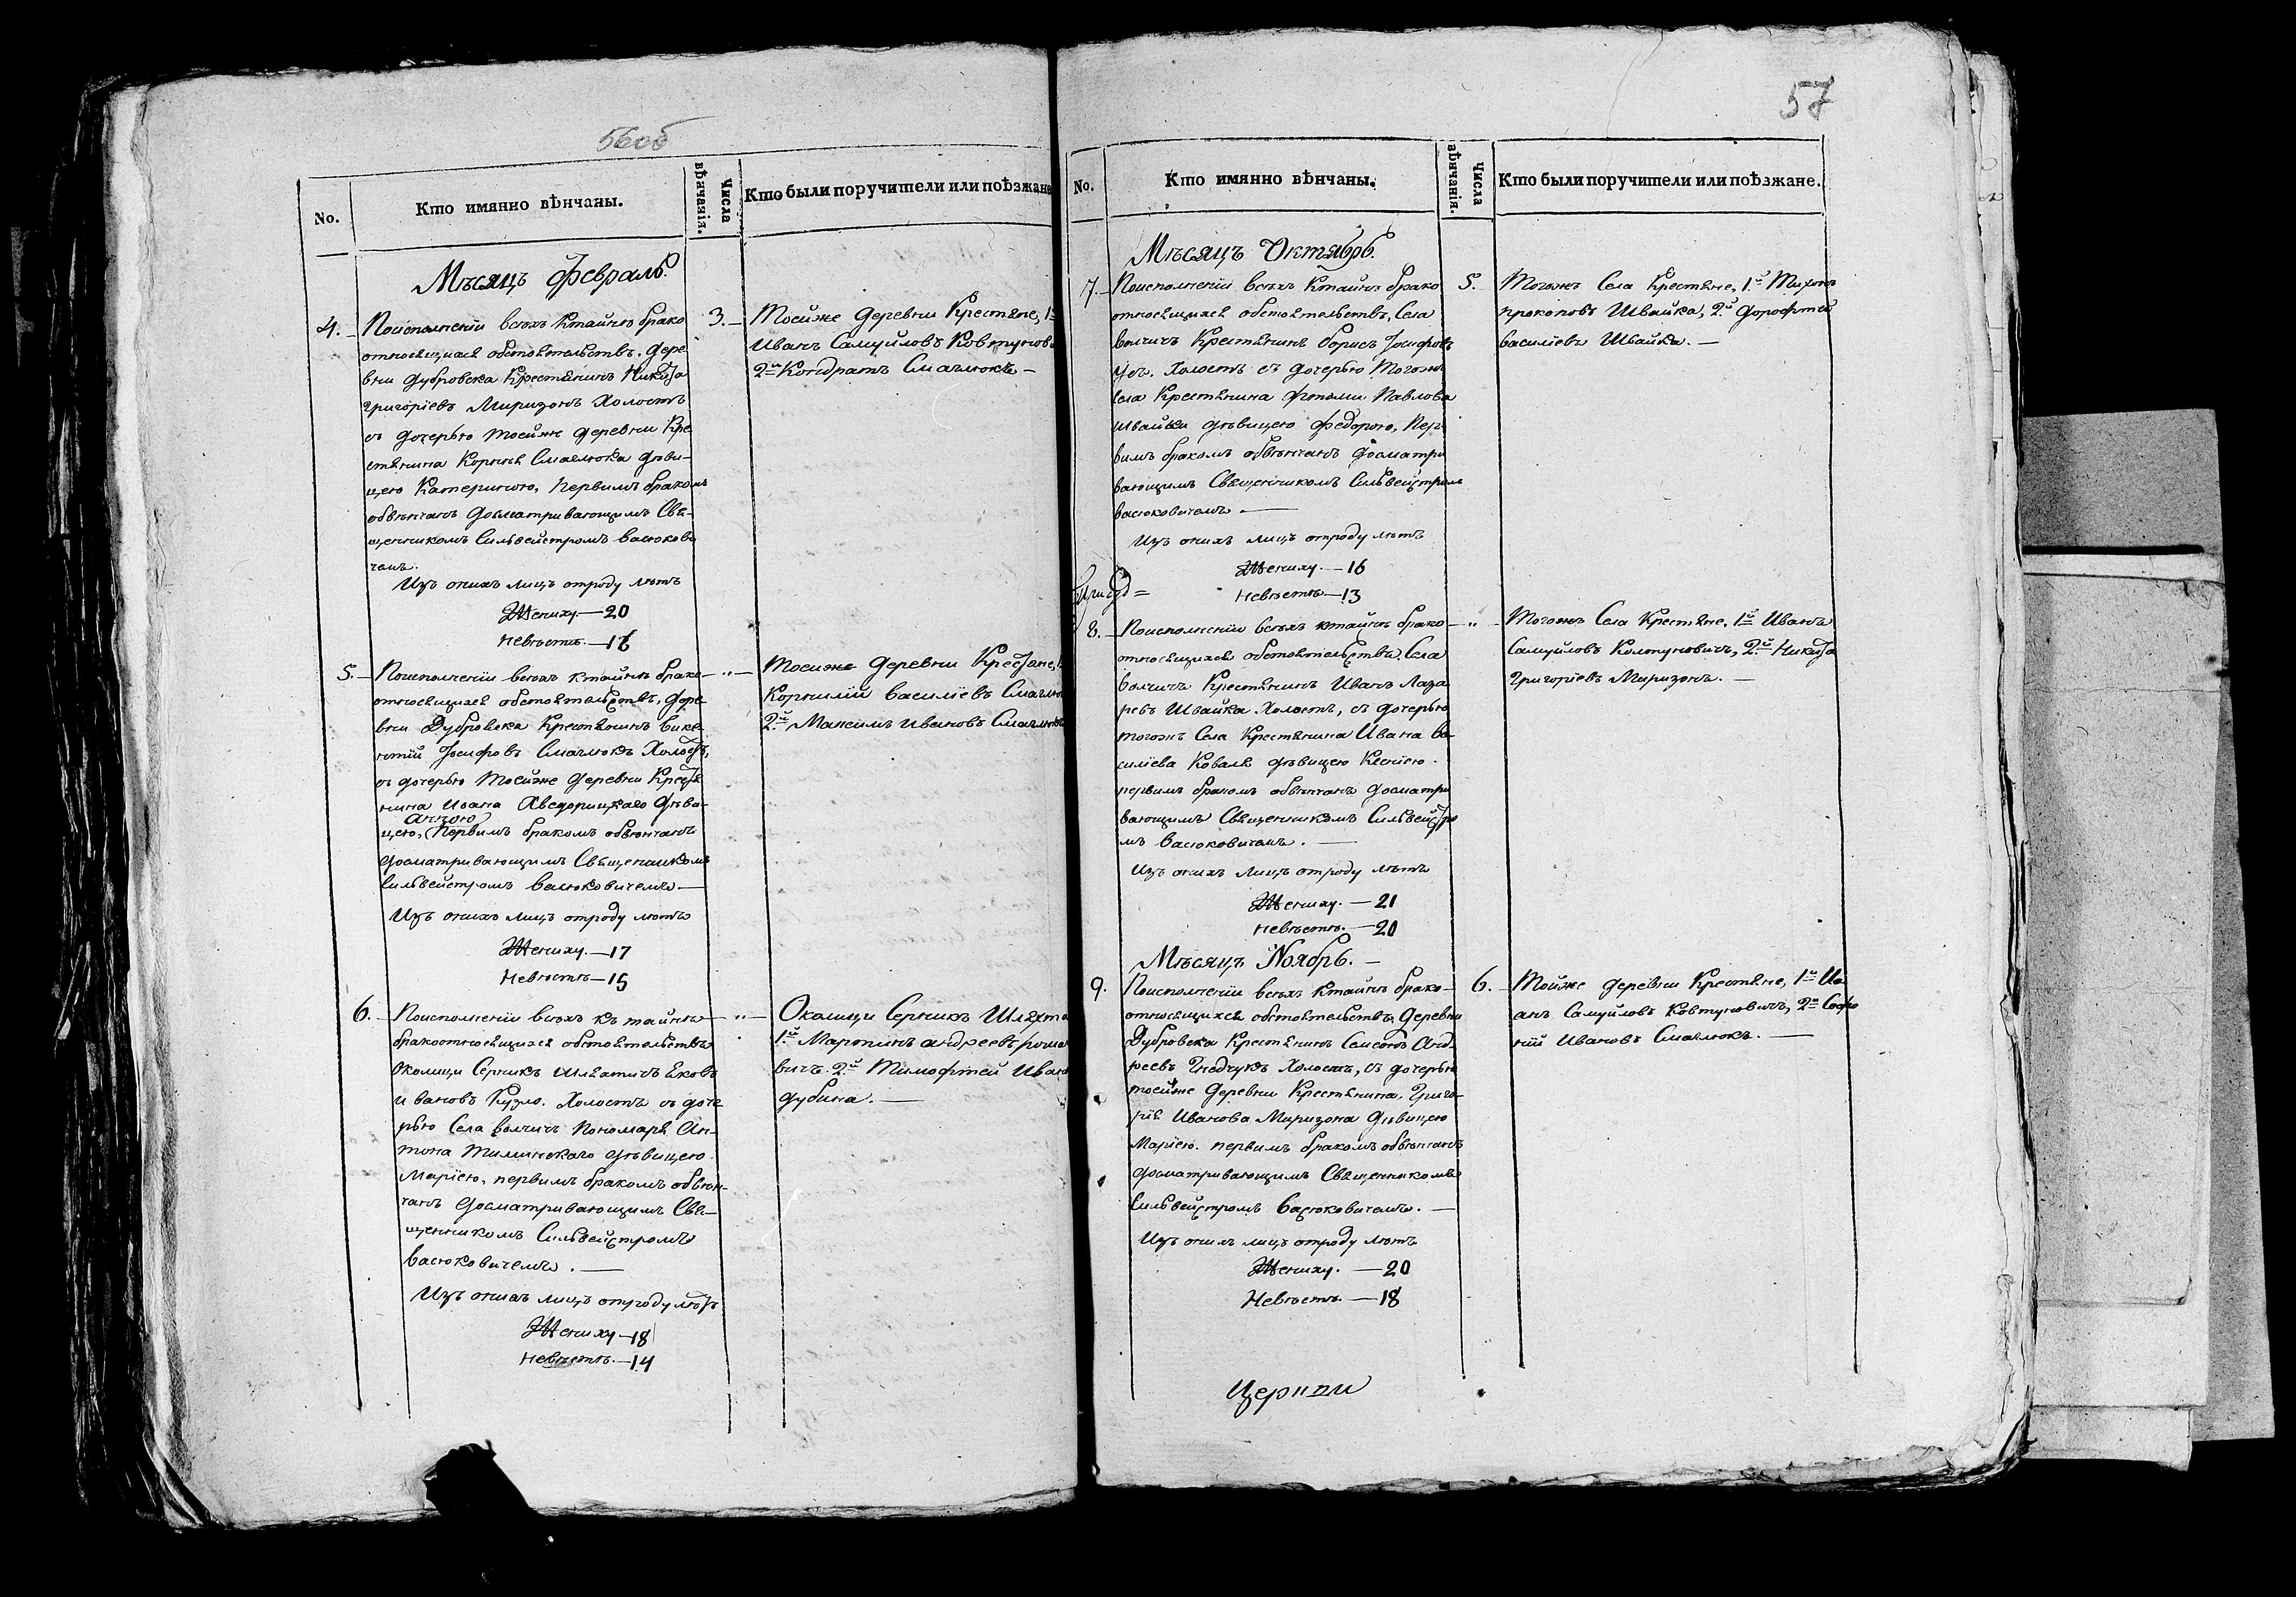 56об
No.
Кто имянно вѣнчаны.
Числа вѣнчанія.
Кто были поручители или поѣзжане
Мѣсяцъ Февраль.
4. Поисполненіи всѣхъ ктайнѣ брако 3.
относящихся обстоятельствъ. Дере
вни Дубровска Крестянинъ Никита
Григоріевъ Миризонъ Холостъ
съ дочерью тоейже деревни Кре
стянина Корнія Смаглюка дѣви-
цею Катериною, первимъ бракомъ
обвѣнчанъ досматривающимъ Свя-
щенникомъ Сильвестромъ Васюкови
чемъ.
Изъ онихъ лицъ отроду лѣтъ
Жениху — 20
Невѣстѣ — 16
Тоейже деревни Крестяне, 1й
Иванъ Самуйловъ Ковтунови
2й Кондратъ Смаглюкъ —
5. Поисполненіи всѣхъ ктайнѣ брако- „
относящихся обстоятельствъ, дере-
вни Дубровска Крестянинъ Вике-
нтій Іосифовъ Смаглюкъ Холостъ,
съ дочерью тоейже деревни Крестя
нина Ивана Хведорицкаго дѣви-
Анною
цею, первимъ бракомъ обвѣнчанъ
досматривающимъ Священникомъ
Сильвестромъ Васюковичемъ —
Изъ онихъ лицъ отроду лѣтъ
Жениху. — 17
Невѣстѣ — 15
Тоейже деревни Крестяне,
Корнилій Василіевъ Смаглю
2й Максимъ Ивановъ Смаглюкъ
6. Поисполненіи всѣхъ къ тайнѣ „
бракоотносящихся обстоятельствъ
Околици Серникъ Шляхтичъ Яковъ
Ивановъ Кузло. Холостъ съ доче
рью Села Волчичъ Пономаря Ан-
тона Тиминскаго дѣвицею
Маріею, первимъ бракомъ обвѣн-
чанъ досматривающимъ Свя-
щенникомъ Сильвестромъ
Васюковичемъ. —
Изъ онихъ лицъ отроду лѣтъ
Жениху — 18
Невѣстѣ. — 14
Околици Серникъ Шляхта
1й Мартинъ Андреевъ Рома
вичъ. 2й Тимофтей Иван
Дубина. —
57
No.
Кто имянно вѣнчаны.
Числа вѣнчанія.
Кто были поручители или поѣзжане.
Мѣсяцъ Октябрь.
7. Поисполненіи всѣхъ ктайнѣ брако 5.
относящихся обстоятельствъ, Села
Волчичъ Крестянинъ Борисъ Іосифовъ
Холостъ съ дочерью тогожъ
Села Крестянина Фтоми Павлова
Швайки дѣвицею Федорою, пер
вимъ бракомъ обвѣнчанъ досматри
вающимъ Священникомъ Сильвестромъ
Васюковичемъ —
Изъ онихъ лицъ отроду лѣтъ
Жениху. — 16
Невѣстѣ — 13
Тогожъ Села Крестяне, 1й Тихонъ
Прокоповъ Швайка, 2й Дорофтей
Василіевъ Швайка. —
8. Поисполненіи всѣхъ ктайнѣ брако „
относящихся обстоятельствъ, Села
Волчичъ Крестянинъ Иванъ Лаза
ревъ Швайка Холостъ, съ дочерью
тогожъ Села Крестянина Ивана Ва-
силіева Коваля дѣвицею Ксеніею.
первимъ бракомъ обвѣнчанъ досматри
вающимъ Священникомъ Сильвестро
мъ Васюковичемъ. —
Изъ онихъ лицъ отроду лѣтъ
Жениху. — 21
Невѣстѣ. — 20
Тогожъ Села Крестяне, 1й Иванъ
Самуйловъ Колтуновичъ, 2й Никита
Григоріевъ Миризонъ. —
Мѣсяцъ Ноябрь. —
9. Поисполненіи всѣхъ ктайнѣ брако- 6.
относящихся обстоятельствъ, Деревни
Дубровска Крестянинъ Семіонъ Анд-
реевъ Гнедчукъ Холостъ, съ дочерью
тоейже деревни Крестянина, Григо-
рія Иванова Миризона дѣвицею
Маріею. первимъ бракомъ обвѣнчанъ
досматривающимъ Священникомъ
Сильвестромъ Васюковичемъ. —
Изъ онихъ лицъ отроду лѣтъ
Жениху. — 20
Невѣстѣ. — 18
Тойже деревни Крестяне, 1й Ив
анъ Самуйловъ Ковтуновичъ, 2й Софо
ній Ивановъ Смаглюкъ. —
Церкви